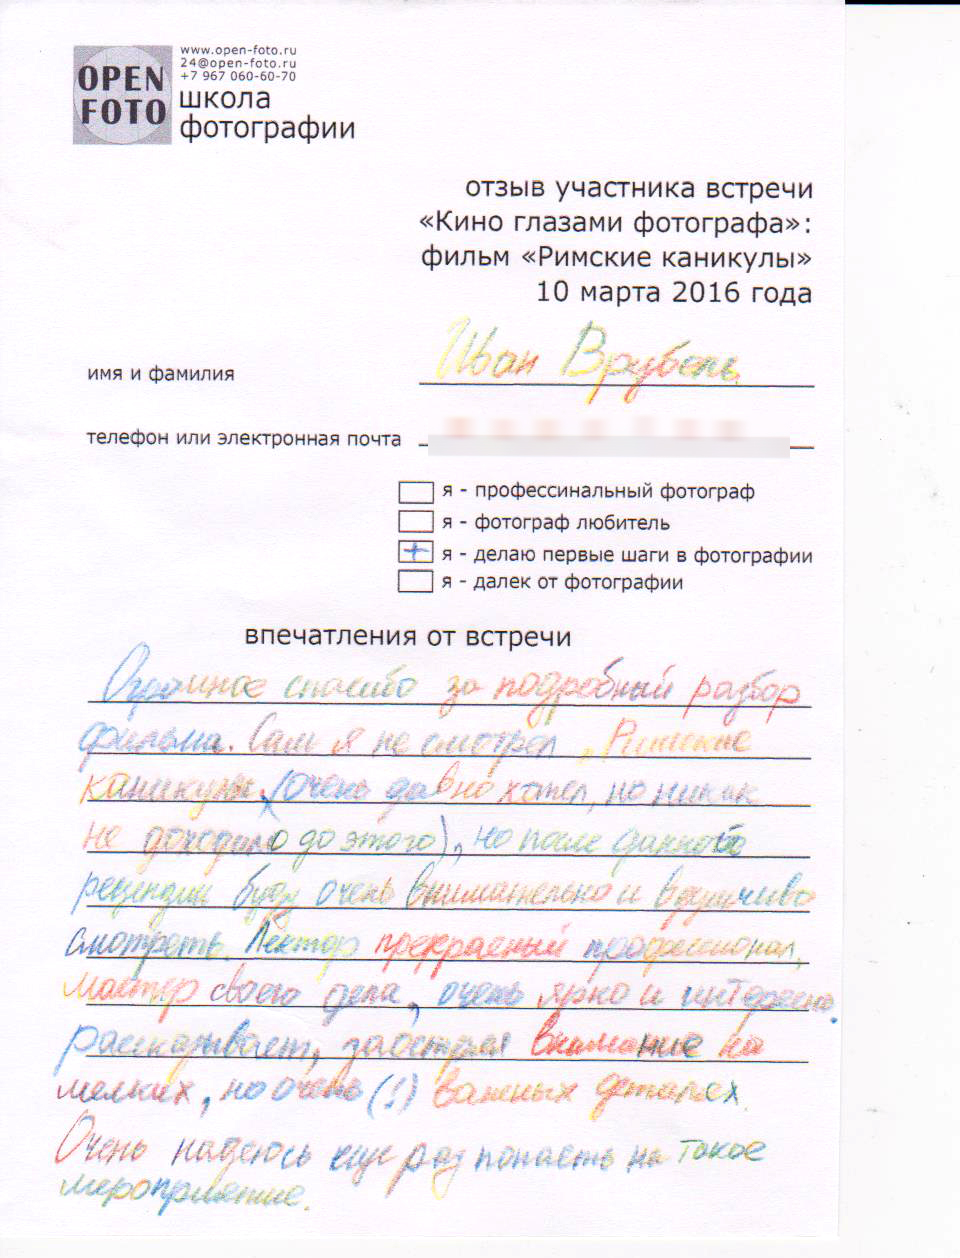 OPEN
FOTO
www.open-foto.ru
24@open-foto.ru
+7 967 060-60-70
школа
фотографии
отзыв участника встречи
«Кино глазами фотографа»:
фильм «Римские каникулы»
10 марта 2016 года
имя и фамилия Иван Врубель
телефон или электронная почта
я - профессинальный фотограф
я - фотограф любитель
+ я - делаю первые шаги в фотографии
я - далек от фотографии
впечатления от встречи
Огромное спасибо за подробный разбор
фильма. Сам я не смотрел „Римские
каникулы" (очень давно хотел, но никак
не доходило до этого), но после данной
рецензии буду очень внимательно и вдумчиво
смотреть. Лектор прекрасный профессионал,
мастер своего дела, очень ярко и интересно
рассказывает, заостряя внимание на
мелких, но очень (!) важных деталях.
Очень надеюсь еще раз попасть на такое
мероприятие.